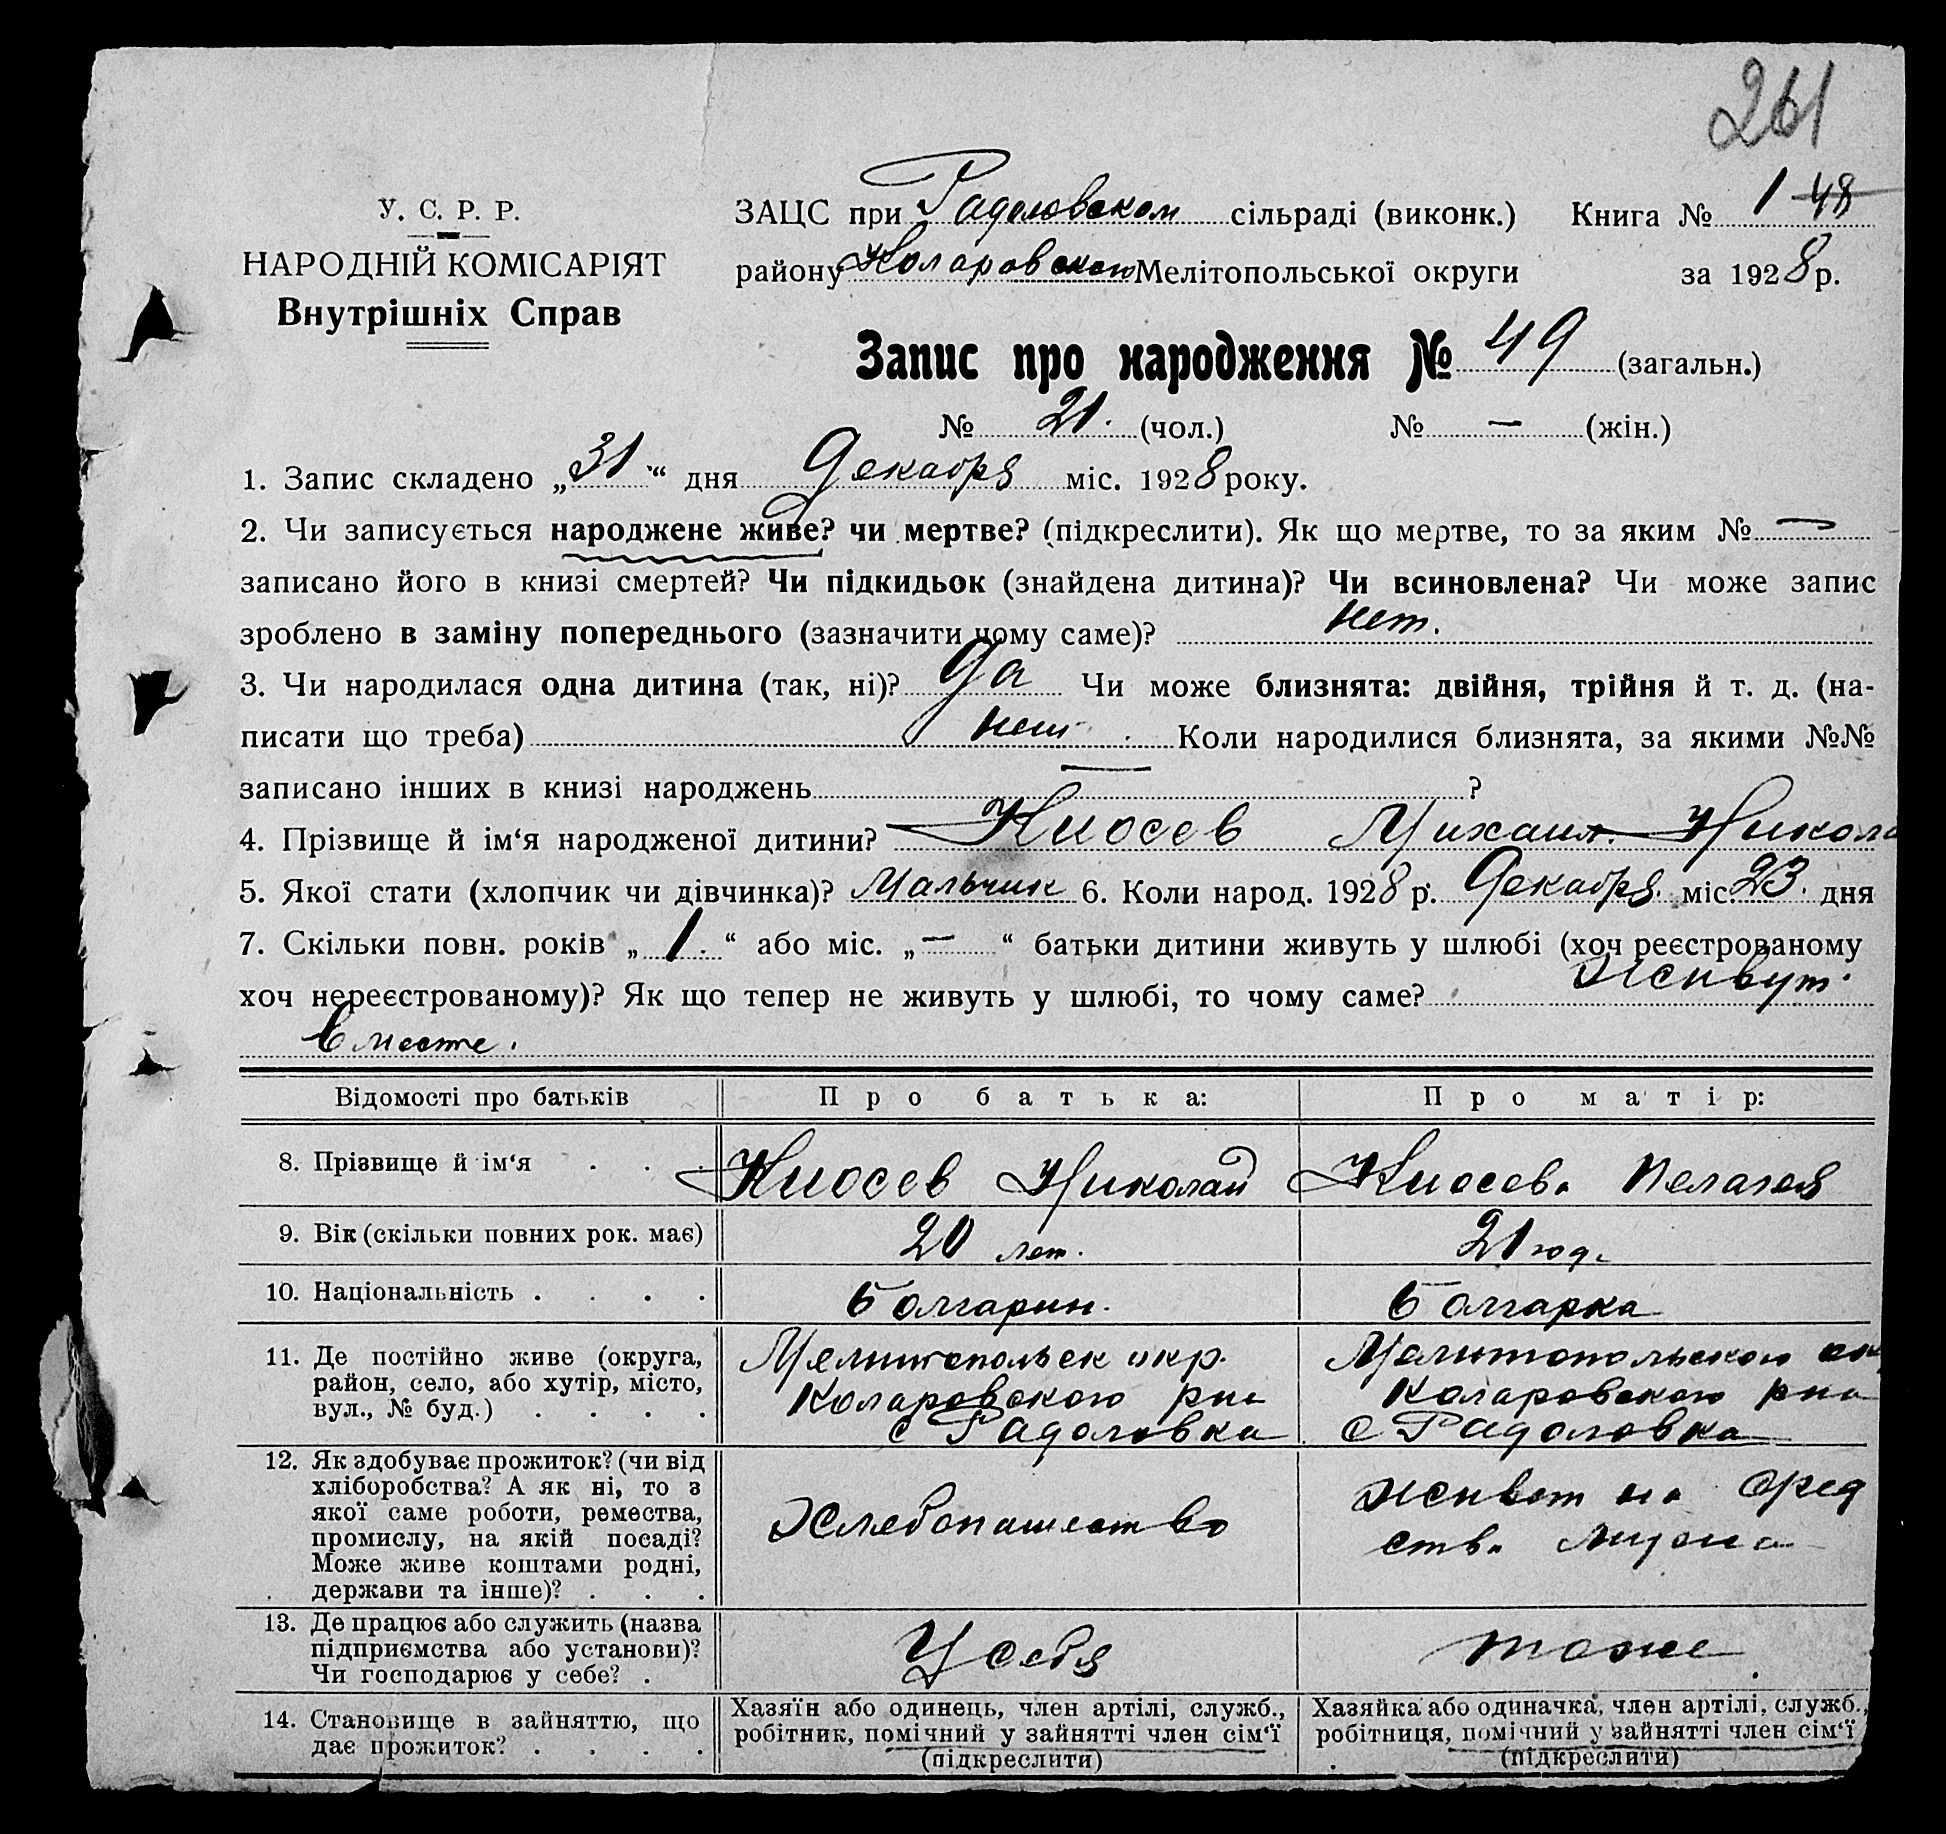 261
У. С. Р. Р.
НАРОДНІЙ КОМІСАРІЯТ
Внутрішніх Справ
ЗАЦС при Радоловском сільраді (виконк.) Книга № 1 48
району Коларовского Мелітопольської округи за 1928 р.
Запис про народження № 49 (загальн.)
№ 21. (чол.) № — (жін.)
1. Запис складено „31“ дня Декабря міс. 1928 року.
2. Чи записується народжене живе? чи мертве? (підкреслити). Як що мертве, то за яким № —
записано його в книзі смертей? Чи підкидьок (знайдена дитина)? Чи всиновлена? Чи може запис
зроблено в заміну попереднього (зазначити чому саме)? нет.
3. Чи народилася одна дитина (так, ні)? Да Чи може близнята: двійня, трійня й т. д. (на-
писати що треба) нет. Коли народилися близнята, за якими №№
записано інших в книзі народжень — ?
4. Прізвище й ім‘я народженої дитини? Киосев Михаил Никола
5. Якої стати (хлопчик чи дівчинка)? Мальчик 6. Коли народ. 1928 р. Декабря міс. 23. дня
7. Скільки повн. років „1.“ або міс. „—“ батьки дитини живуть у шлюбі (хоч реєстрованому
хоч нереєстрованому)? Як що тепер не живуть у шлюбі, то чому саме? живут
вместе.
Відомості про батьків Про батька: Про матір:
8. Прізвище й ім‘я . . . Киосев Николай Киосева Пелагея
9. Вік (скільки повних рок. має) 20 лет. 21 год.
10. Національність . . . . Болгарин. Болгарка
11. Де постійно живе (округа, район, село, або хутір, місто, вул., № буд.) . . . .
Мелитопольск окр.
Коларовского рна
с Радоловка
Мелитопольского ок
Коларовского рна
с Радоловка
12. Як здобуває прожиток? (чи від
хліборобства? А як ні, то з
якої саме роботи, ремества,
промислу, на якій посаді?
Може живе коштами родні,
держави та інше)? . . .
Хлебопашество
живет на сред
ства мужа
13. Де працює або служить (назва
підприємства або установи)?
Чи господарює у себе? .
У себя
тоже
14. Становище в зайняттю, що
дає прожиток? . . . .
Хазяїн або одинець, член артілі, служб.,
робітник, помічний у зайнятті член сім‘ї
(підкреслити)
Хазяйка або одиначка, член артілі, служб.,
робітниця, помічний у зайнятті член сім‘ї
(підкреслити)